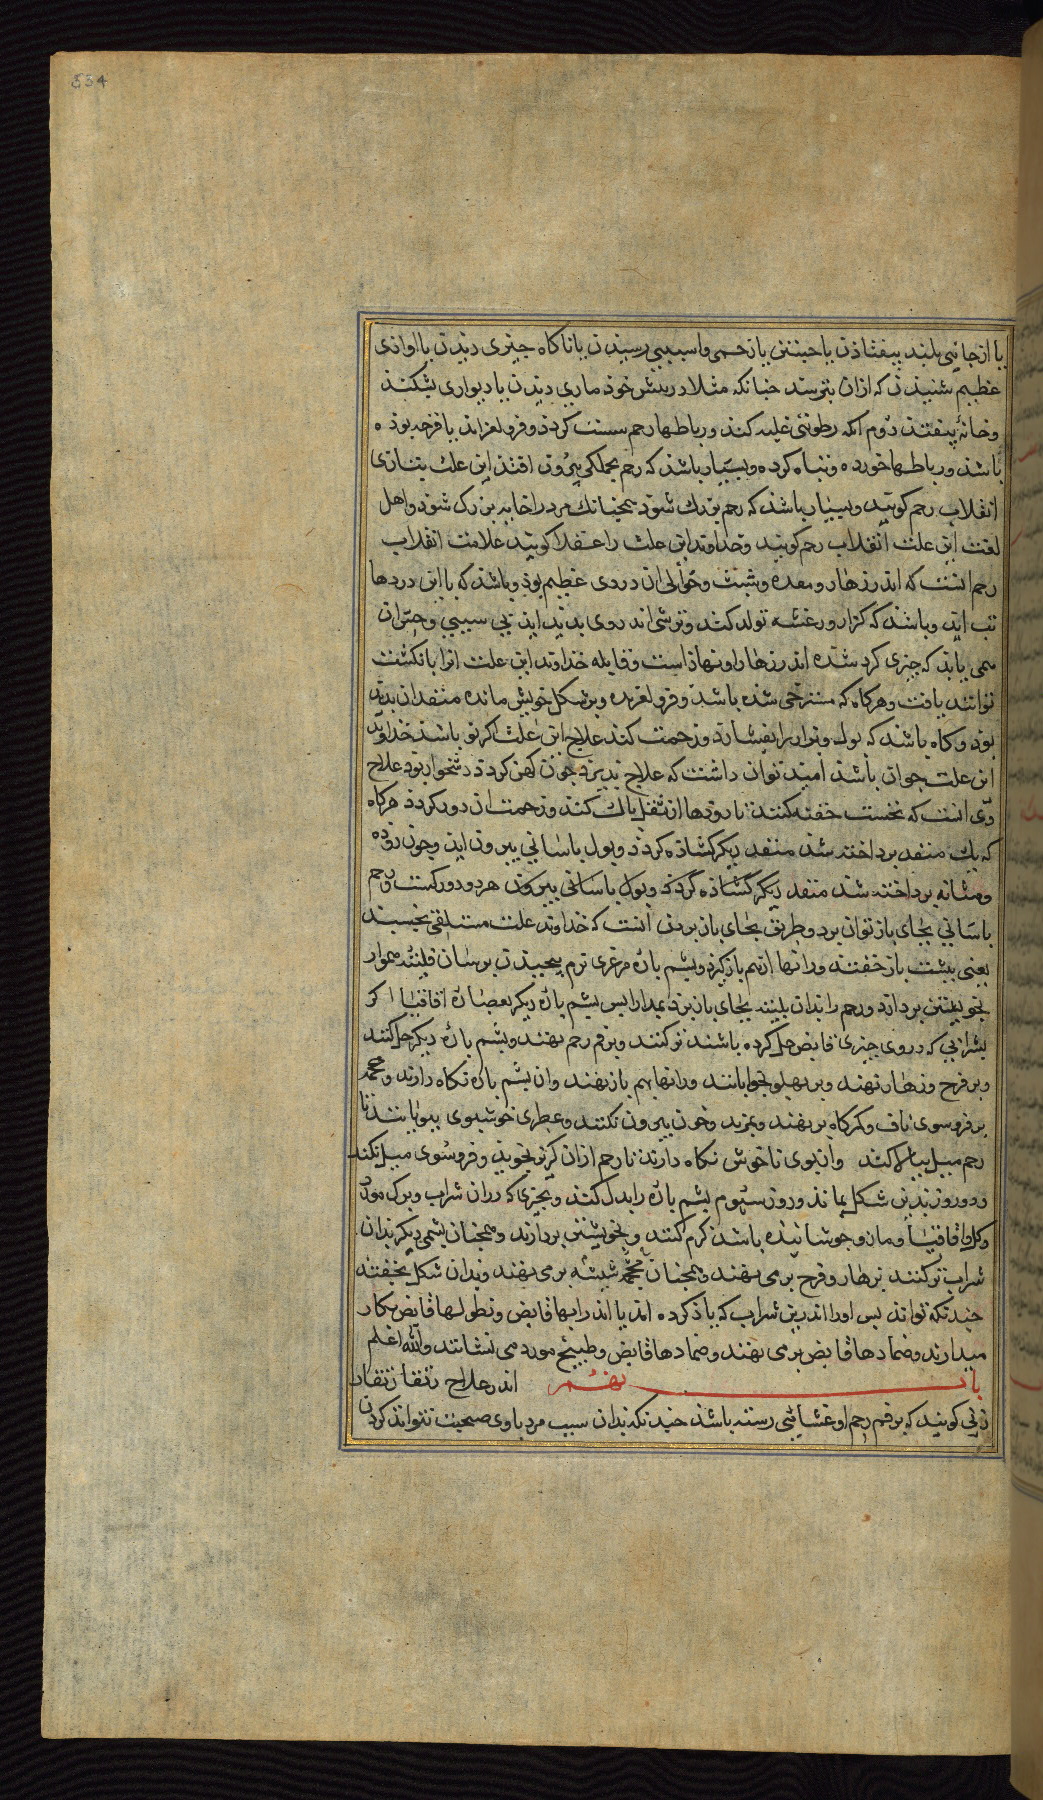 534
یا از جایی بلند بیفتاذن یا جستنی یا زخمی واسیبی رسیدن یا ناکاه چیزی دیدن یا اوازی
عظیم شنیدن که ازان بترسد جنانکه مثلا در پیش خوذ ماری دیدن یا دیواری بشکند
وخانۀ بیفتد دوم انکه رطوبتی غلبه کند ورباطها رحم سست کردد وفرو لغزاند یا قرحه بوذه
باشد ورباطها خورده وتباه کرده وبسیار باشد که رحم بجملکی بیرون افتد این علت بتازی
انقلاب رحم کویند وبسیار باشد که رحم بزرک شود همجنانک مرد را خایه بزرک شود واهل
لغت این علت انقلاب رحم کویند وخداوند این علت را عفلا کویند علامت انقلاب
رحم انست که اندر زهار ومعده وپشت وحوالی ان دردی عظیم بود وباشد که با این دردها
تب اید وباشد که کزاز ورعشه تولد کند وترسی اندر وی بدید اید بی سببی وحس ان
همی یابد که چیزی کرد شده اندر زهار او نهاذاست وقابله خداوند این علت انرا بانکشت
تواند یافت وهرکاه که مسترخی شده باشد وفرو لغزیده وبر شکل خویش مانده منفذ ان بدید
بود وکاه باشد که بول وبراز را بفشارد وزحمت کند علاج این علت اکر نو باشد وخداوند
این علت جوان باشد امید توان داشت که علاج پذیرد جون کهن کردد دشخوار بود علاج
وی انست که نخست حقنه کنند تا رودها از ثفل پاک کند وزحمت ان دور کردد هرکاه
که یک منفذ برداخته شد منفذ دیکر کشاذه کردد وبول باسانی بیرون اید وجون روده
ومثانه برداخته شد منفذ دیکر کشاذه کردد وبول باسانی بیرون هر دو دور کشت ورحم
باسانی بجای باز توان برد وطریق بجای باز بردن انست که خداوند علت مستلقی بخسبد
یعنی بپشت باز خفتد ورانها ازهم باز کیرد وپشم پاره مرغزی نرم ببیجیدن برسان فلیته هموار
بخویشتن بردارد ورحم را بدان پلیته بجای باز برد بمدارا پس پشم پاره دیکر بعصاره اقاقیا اکر
بشرابی که دروی چیزی قابض حل کرده باشند تر کنند وبر فم رحم نهند وپشم پاره دیکر حل کنند
وبر فرج وزهار نهند وبر پهلو بخوابانند ورانها بهم باز نهند وان پشم پاره نکاه دارند ومحجمه
بر فروسوی ناف وکمرکاه بر نهند وبمزند وخون بیرون نکنند وعطری خوشبوی ببویانند تا
رحم میل ببالا کند وازبوی ناخوش نکاه دارند تا رحم ازان کریز نجوید وفروسوی میل نکند
ودو روز بذین شکل بماند وروز سیوم پشم پاره را بدل کنند وبجیزی که دران شراب وبرک مورد
وکل واقاقیا ومازو جوشانیده باشد کرم کنند وبخویشتن بردارند وهمجنان پشمی دیکر بدان
شراب تر کنند بر زهار وفرج برمی نهند وهمجنان محجمه شیشه برمی نهند وبدان شکل بخفتد
جندانکه تواند پس اورا اندرین شراب که یاذ کرده اند یا اندر ابها قابض ونطولها قابض بکار
میدارند وضمادها قابض برمی نهند وضمادها قابض وطبیخ مورد می نشانند والله اعلم
باب نهم اندر علاج رتقا رتقا ان
زنی کویند که بر فم رحم او غشایی رسته باشد جندانکه بدان سبب مرد با وی صحبت نتواند کردن